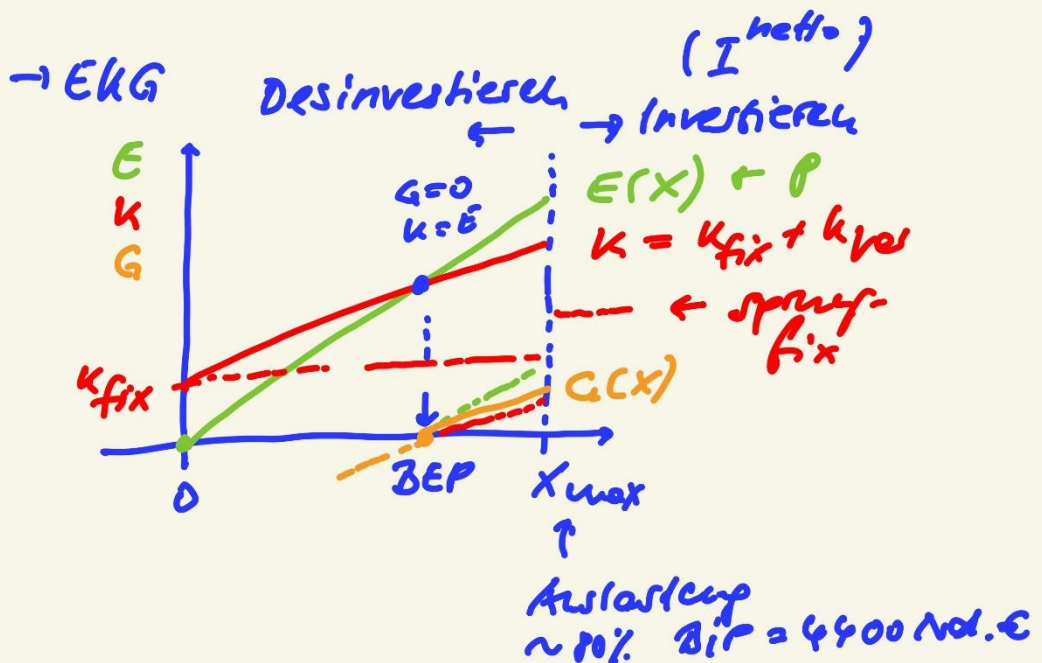 (I^netto)
→ EKG
Desinvestieren
← → Investieren
E
K
G
G=0
K=E
E(x) ← P
K = K_fix + K_var
← sprung-
fix
K_fix
G(x)
0
BEP
X_max
↑
Auslastung
~ 80% BIP = 4400 Mrd. €